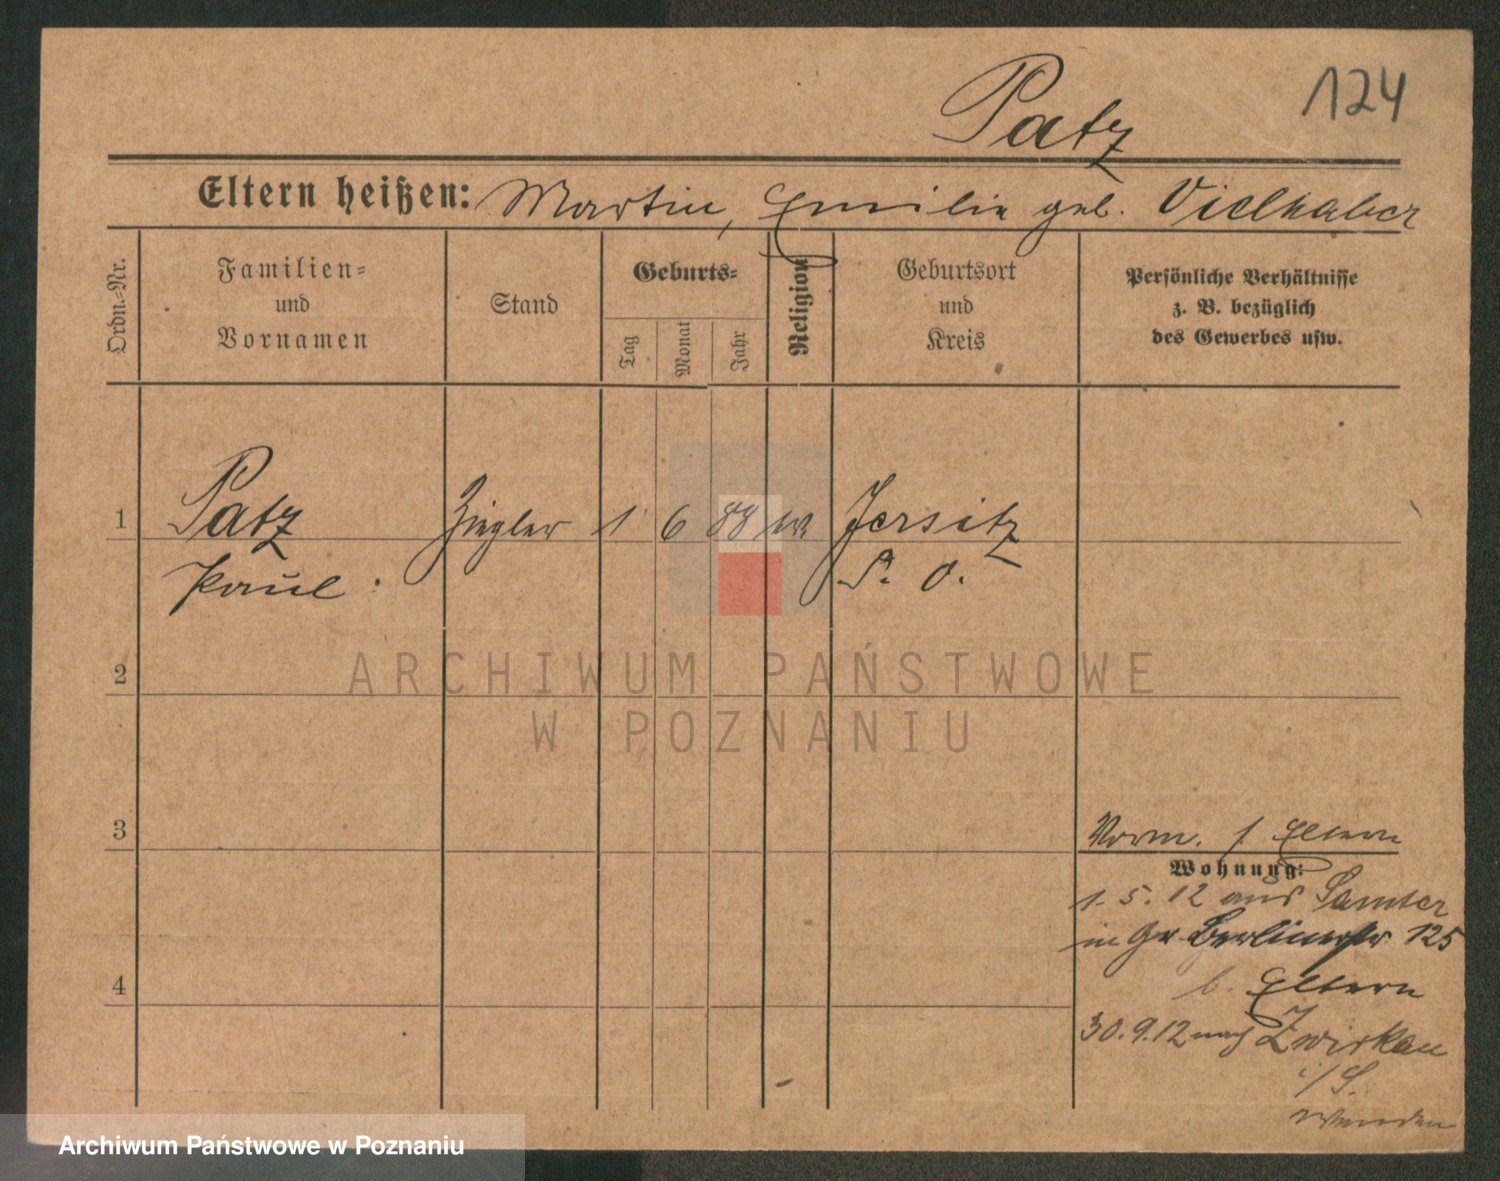 124
Patz
Eltern heißen: Martin, Emilie geb. Vielhaber
Ordn.=Nr.
Familien=
und
Vornamen
Stand
Geburts=
Tag
Monat
Jahr
Religion
Geburtsort
und
Kreis
Persönliche Verhältnisse
z. B. bezüglich
des Gewerbes usw.
1
Patz Ziegler 1 6 88 Jersitz
Paul P. O.
2
3
4
Vorm. s. Eltern
Wohnung:
1. 5. 12 aus Samter
in Gr Berlinerstr 125
b. Eltern
30. 9. 12 nach Zwickau
i/S.
ARCHIWUM PAŃSTWOWE
W POZNANIU
Archiwum Państwowe w Poznaniu